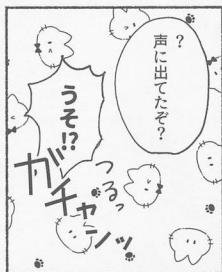 ？
声に出てたぞ？
うそ!?
つるっ
ガチャンッ